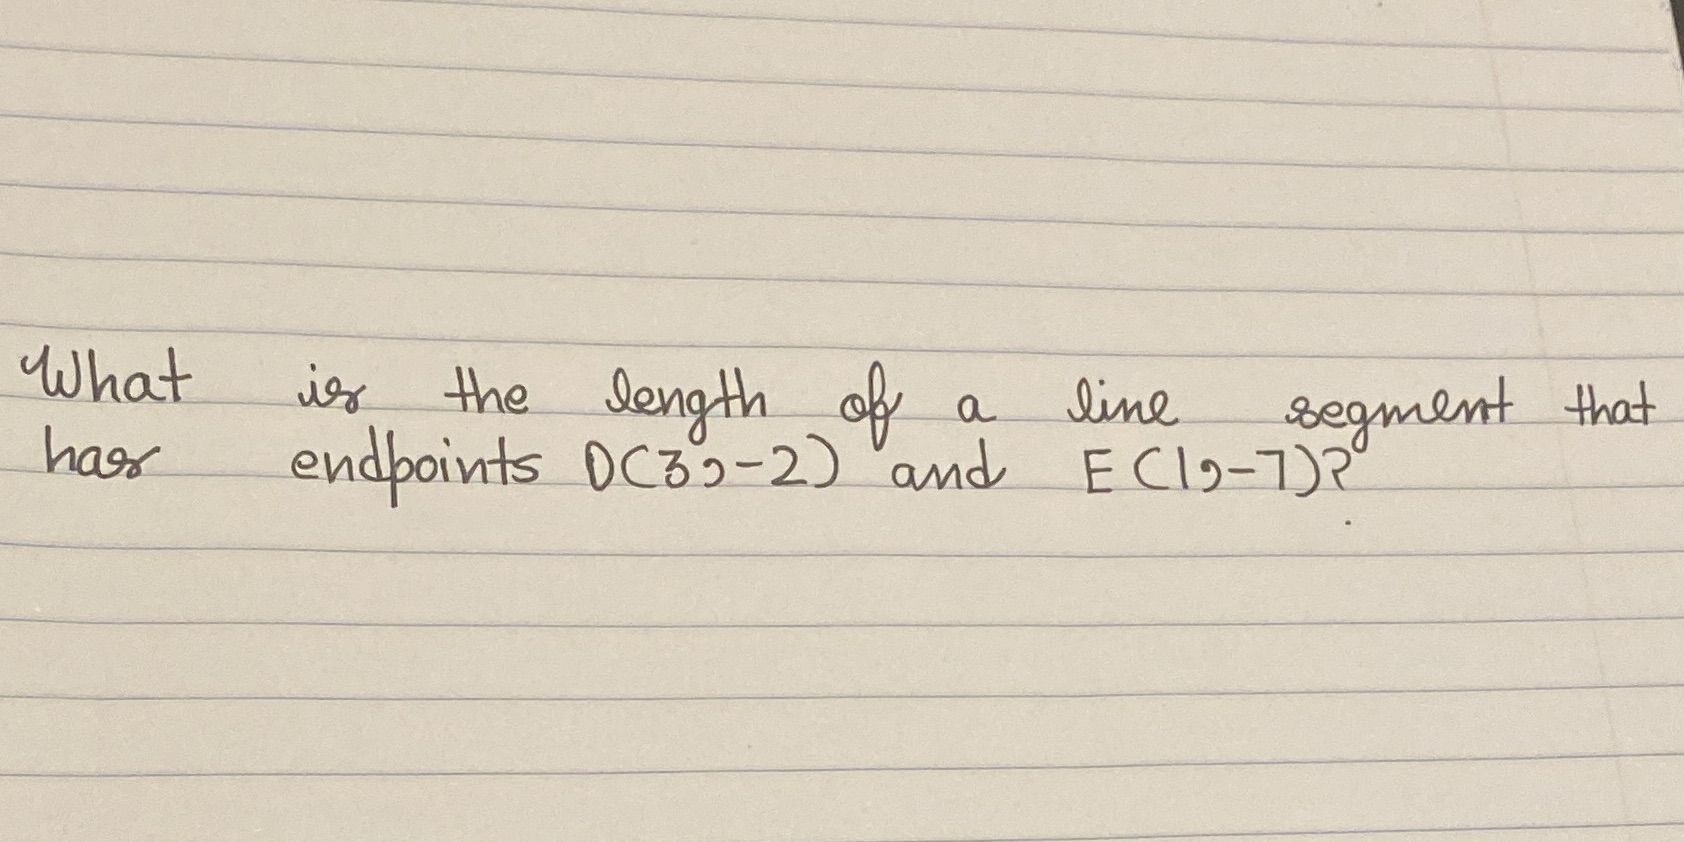 What is the length of a line segment that
has endpoints D(3,-2) and E(1,-7)?